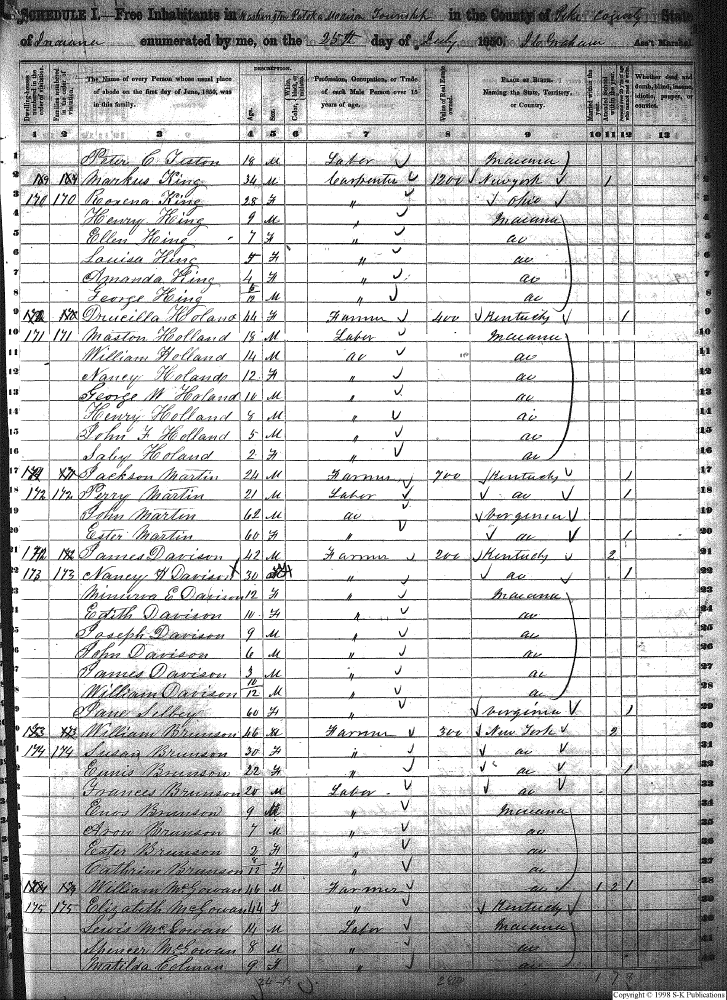 SCHEDULE I.—Free Inhabitants in Washington Patoka Monroe Township in the County of Pike County State
of Indiana enumerated by me, on the 25th day of July 1850. Ass't Marshal.
DESCRIPTION.
The Name of every Person whose usual place of abode on the first day of June, 1850, was in this family.
Age.
Sex.
Profession, Occupation, or Trade of each Male Person over 15 years of age.
Value of Real Estate owned.
PLACE OF BIRTH. Naming the State, Territory, or Country.
1 2 3 4 5 6 7 8 9 10 11 12 13
1 Peter C. 18 M Labor Indiana
2 Markus King 34 M Carpenter 1200 New york 1
3 170 170 Roxena King 28 F " Ohio
4 Henry King 9 M " Indiana
5 Ellen King 7 F " do
6 Louisa King F " do
7 Amanda King 4 F " do
8 George King /12 M " do
9 Drucilla Holand 44 F Farmer 400 Kentucky 1
10 171 171 Maston Holland 18 M Labor Indiana
11 William Holland 14 M do do
12 Nancy Holand 12 F " do
13 George W Holand 10 M " do
14 Henry Holland 8 M " do
15 John F Holland 5 M " do
16 Holand 2 F " do
17 Jackson Martin 24 M Farmer 700 Kentucky 1
18 172 172 Perry Martin 21 M Labor do 1
19 John Martin 62 M do Verginea
20 Ester Martin 60 F " do 1
21 James Davison 42 M Farmer 200 Kentucky 2
22 173 173 Nancy H Davison 30 F " do 1
23 Minerva E Davison 12 F " Indiana
24 Edith Davison 10 F " do
25 Joseph Davison 9 M " do
26 John Davison 6 M " do
27 James Davison 3 M " do
28 William Davison 10/12 M " do
29 Jane Selbey 60 F " Verginia 1
30 William Brunson 46 M Farmer 300 New York 2
31 174 174 Susan Brunson 30 F " do
32 Eunis Brunson 22 F " do 1
33 Frances Brunson 20 M Labor do
34 Enos Brunson 9 M " Indiana
35 Aron Brunson 7 M " do
36 Ester Brunson 2 F " do
37 Cathrine Brunson /12 F " do
38 William McGowan 46 M Farmer do 1 2 1
39 175 175 Elizabeth McGowan 44 F " Kentucky
40 Lewis McGowan 14 M Labor Indiana
41 Spencer McGowan 8 M " do
42 Matilda Colman 9 F " do
Copyright © 1998 S-K Publications